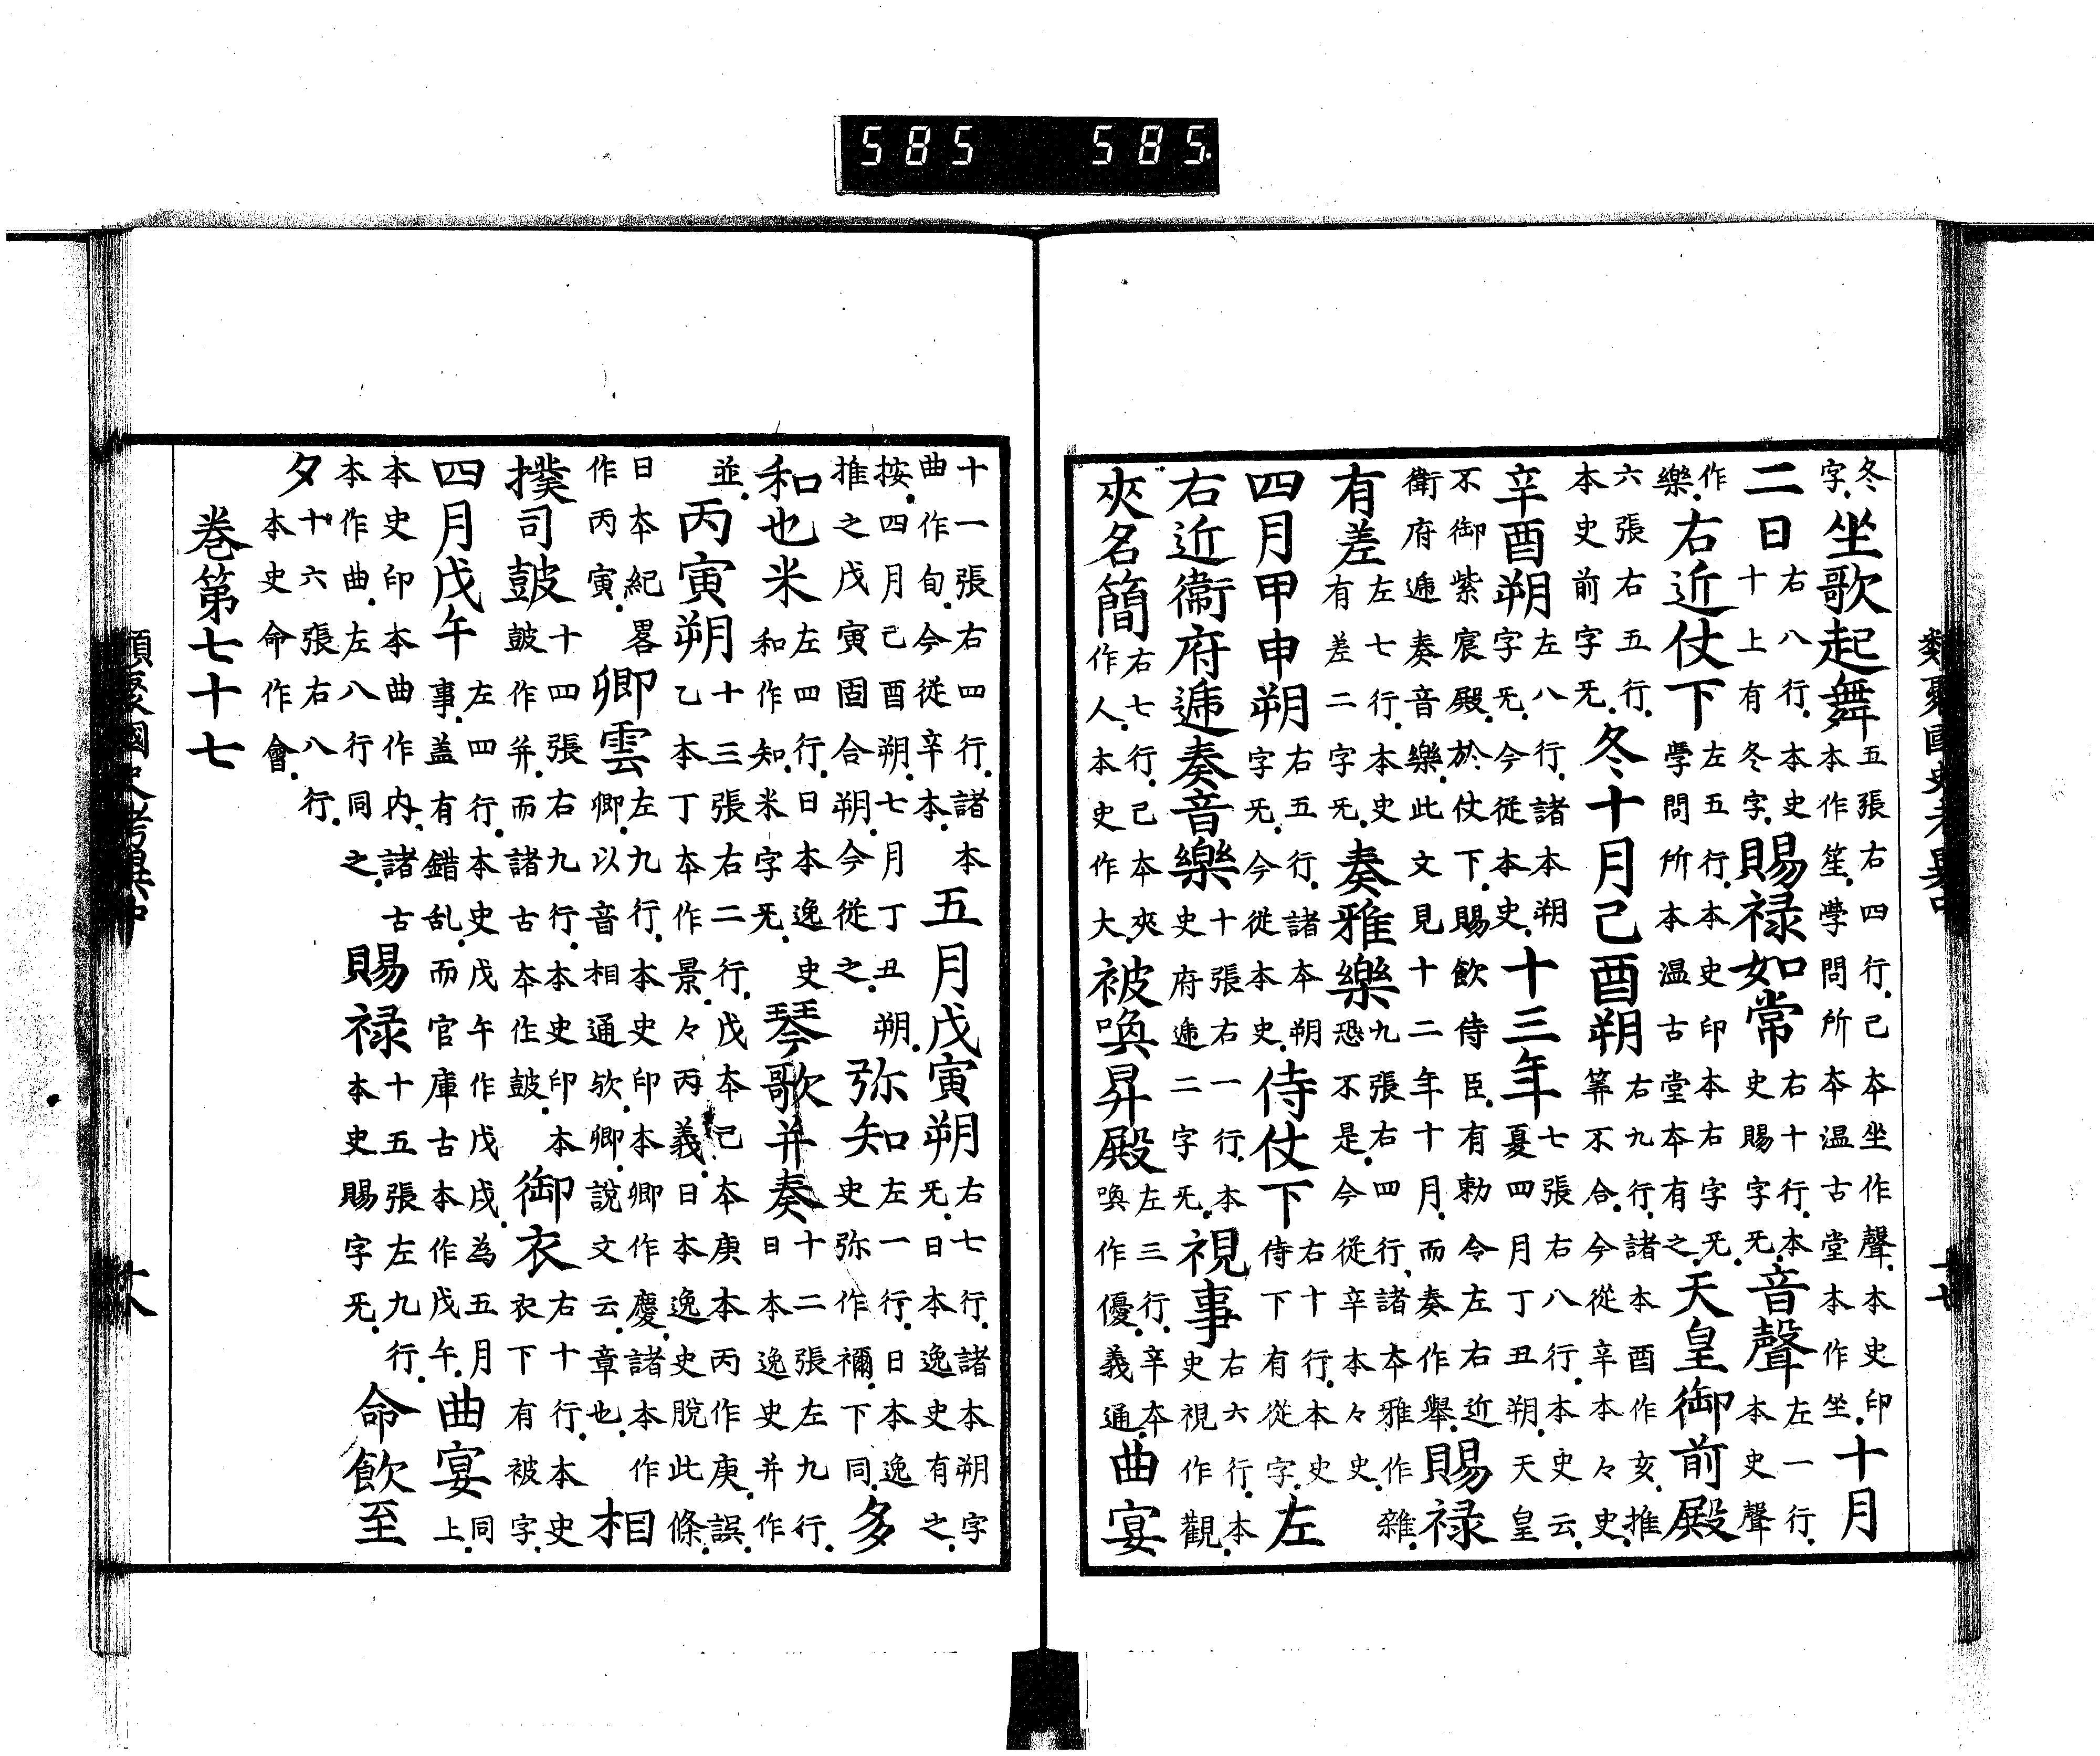 類聚國史考異中 十七
冬字坐歌起舞五張右四行己本坐作聲本史印本作笙學問所本温古堂本作坐十月
二日右八行本史十上有冬字賜禄如常右十行本史賜字旡音聲左一行本史聲
作樂右近仗下左五行本史印本右字旡學問所本温古堂本有之天皇御前殿
六張右五行本史前字旡冬十月己酉朔右九行諸本酉作亥推筭不合今從辛本々史
辛酉朔左八行諸本朔字旡今從本史十三年七張右八行本史云夏四月丁丑朔天皇
不御紫宸殿於仗下賜飲侍臣有勅令左右近衛府逓奏音樂此文見十二年十月而奏作舉賜禄
有差左七行本史有差二字旡奏雅樂九張右四行諸本雅作雜恐不是今從辛本々史
四月甲申朔右五行諸本朔字旡今從本史侍仗下右十行本史侍下有從字左
右近衞府逓奏音樂十張右一行本史府逓二字旡視事右六行本史視作觀
夾名簡右七行己本夾作人本史作大被喚昇殿左三行辛本喚作優義通曲宴
十一張右四行諸本曲作旬今從辛本五月戊寅朔右七行諸本朔字旡日本逸史有之
按四月己酉朔七月丁丑朔推之戊寅固合朔今從之弥知左一行日本逸史弥作禰下同多
和也米左四行日本逸史和作知米字旡琴歌并奏十二張左九行日本逸史并作
並丙寅朔十三張右二行戊本己本庚本丙作庚誤乙本丁本作景々丙義日本逸史脱此條
日本紀畧作丙寅卿雲左九行本史印本卿作慶諸本作卿以音相通欤卿説文云章也相
撲司皷十四張右九行本史印本皷作并而諸古本作皷御衣右十行本史衣下有被字
四月戊午左四行本史戊午作戊戌為五月事盖有錯乱而官庫古本作戊午曲宴同上
本史印本曲作内諸古本作曲左八行同之賜禄十五張左九行本史賜字旡命飲至
夕十六張右八行本史命作會
巻第七十七
類聚國史考異中 十八